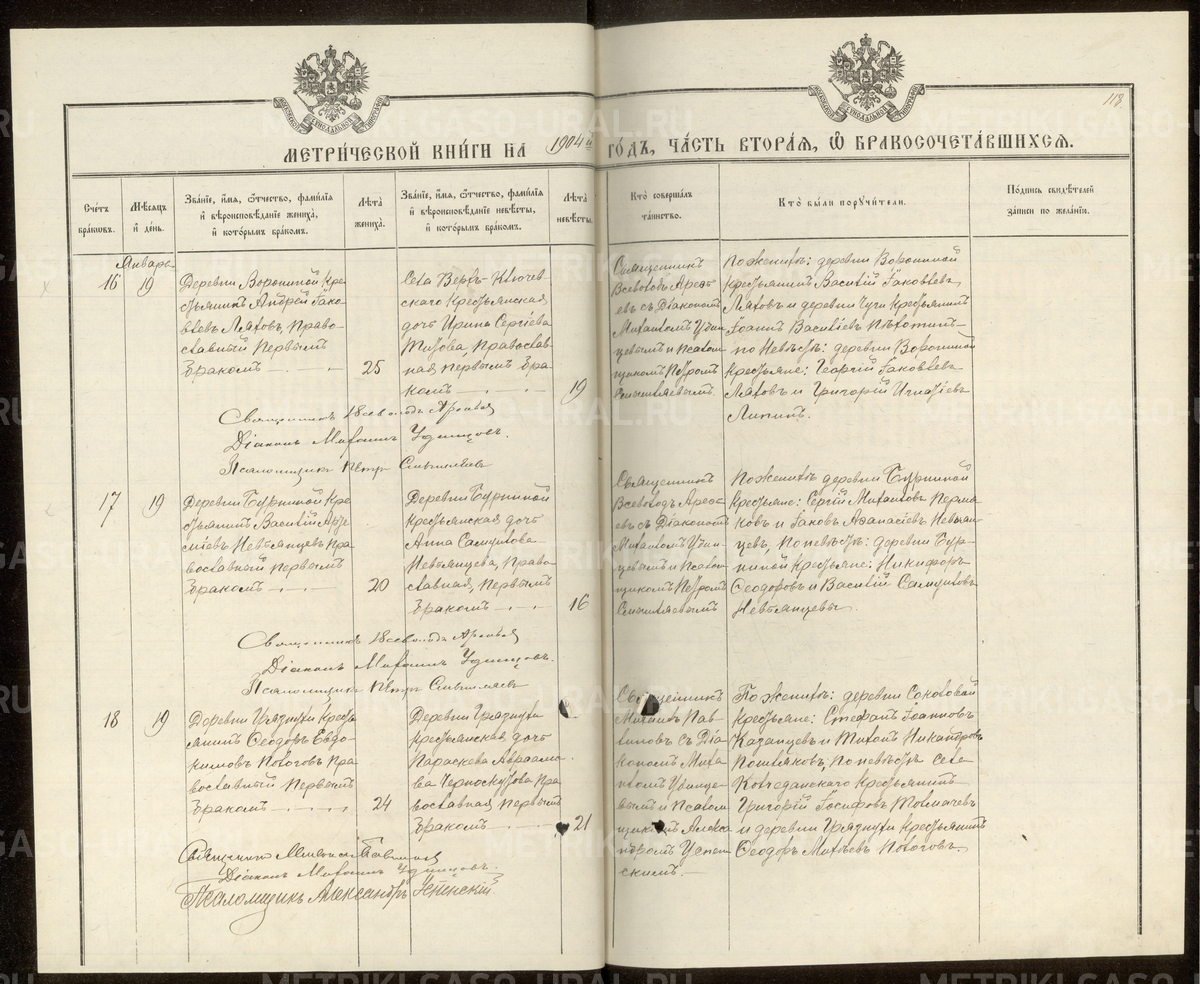 118
МЕТРИ́ЧЕСКОЙ КНИ́ГИ НА 1904й ГО́ДЪ, ЧА́СТЬ ВТОРА́Я, Ѡ БРАКОСОЧЕТА́ВШИХСЯ.
Сче́тъ бра́ковъ.
Мѣ́сяцъ и́ де́нь.
Зва́нїе, и́мя, ѻ́тчество, фами́лїя и́ вѣроисповѣ́данїе жениха́, и́ кото́рымъ бра́комъ.
Лѣ́та жениха́.
Зва́нїе, и́мя, ѻ́тчество, фами́лїя и́ вѣроисповѣ́данїе невѣ́сты, и́ кото́рымъ бра́комъ.
Лѣ́та невѣ́сты.
Кто̀ соверша́лъ та́инство.
Кто̀ бы́ли поручи́тели.
По́дпись свидѣ́телей за́писи по жела́нїю.
Января
16
19
Деревни Ворониной Кре-
стьянинъ Андрей Яко-
влевъ Ляховъ, Право-
славный Первымъ
бракомъ
25
Села Верхъ-Ключев-
скаго Крестьянская
дочь Ирина Сергіева
Православ-
ная первымъ бра-
комъ
19
Священникъ
Всеволодъ Арефь-
евъ съ Діакономъ
Михаиломъ Удин-
цевымъ и Псалом-
щикомъ Петромъ
Смышляевымъ.
По женихѣ: деревни Ворониной
Крестьянинъ Василій Яковлевъ
Ляховъ и деревни Крестьянинъ
Іоаннъ Василіевъ
по Невѣстѣ: деревни Ворониной
Крестьяне: Георгій Яковлевъ
Ляховъ и Григорій Игнатіевъ
Священникъ Всеволодъ Арефьев
Діаконъ Михаилъ Удинцовъ.
Псаломщикъ Петръ Смышляевъ
17
19
Деревни Бурниной Кре-
стьянинъ Василій
Невьянцевъ Пра-
вославный первымъ
бракомъ
20
Деревни Бурниной
Крестьянская дочь
Анна Самуилова
Невьянцева, Право-
славная, Первымъ
бракомъ
16
Священникъ
Всеволодъ Арефь-
евъ съ Діакономъ
Михаиломъ Удин-
цевымъ и Псалом-
щикомъ Петромъ
Смышляевымъ
По женихѣ деревни Бурниной
Крестьяне: Сергій Михаиловъ Перма-
ковъ и Іаковъ Аѳанасіевъ Невьян-
цевъ, По невѣстѣ: деревни Бур-
ниной Крестьяне: Никифоръ
Ѳеодоровъ и Василій Самуиловъ
Невьянцевы.
Священникъ Всеволодъ Арефьев
Діаконъ Михаилъ Удинцовъ.
Псаломщикъ Петръ Смышляевъ
18
19
Деревни Грязнухи Кресть-
янинъ Ѳеодоръ Евдо-
кимовъ Пологовъ Пра-
вославный Первымъ
бракомъ
24
Деревни Грязнухи
Крестьянская дочь
Параскева Авраамо-
ва Черноскутова Пра-
вославная Первымъ
бракомъ
21
Священникъ
Михаилъ Пав-
линовъ съ Діа-
кономъ Миха-
иломъ Удинце-
вымъ и Псалом-
щикомъ Алекса
ндромъ Успен-
скимъ.
По женихѣ: деревни Соколовой
Крестьяне: Стефанъ Іоанновъ
Казанцевъ и Никандровъ
По невѣстѣ села
Колчеданскаго Крестьянинъ
Григорій Іосифовъ Толмачевъ
и деревни Грязнухи Крестьянинъ
Ѳеодоръ Пологовъ.
Священникъ Михаилъ Павлинов
Діаконъ Михаилъ Удинцовъ.
Псаломщикъ Александръ Успенскій.
METRIKI.GASO-URAL.RU